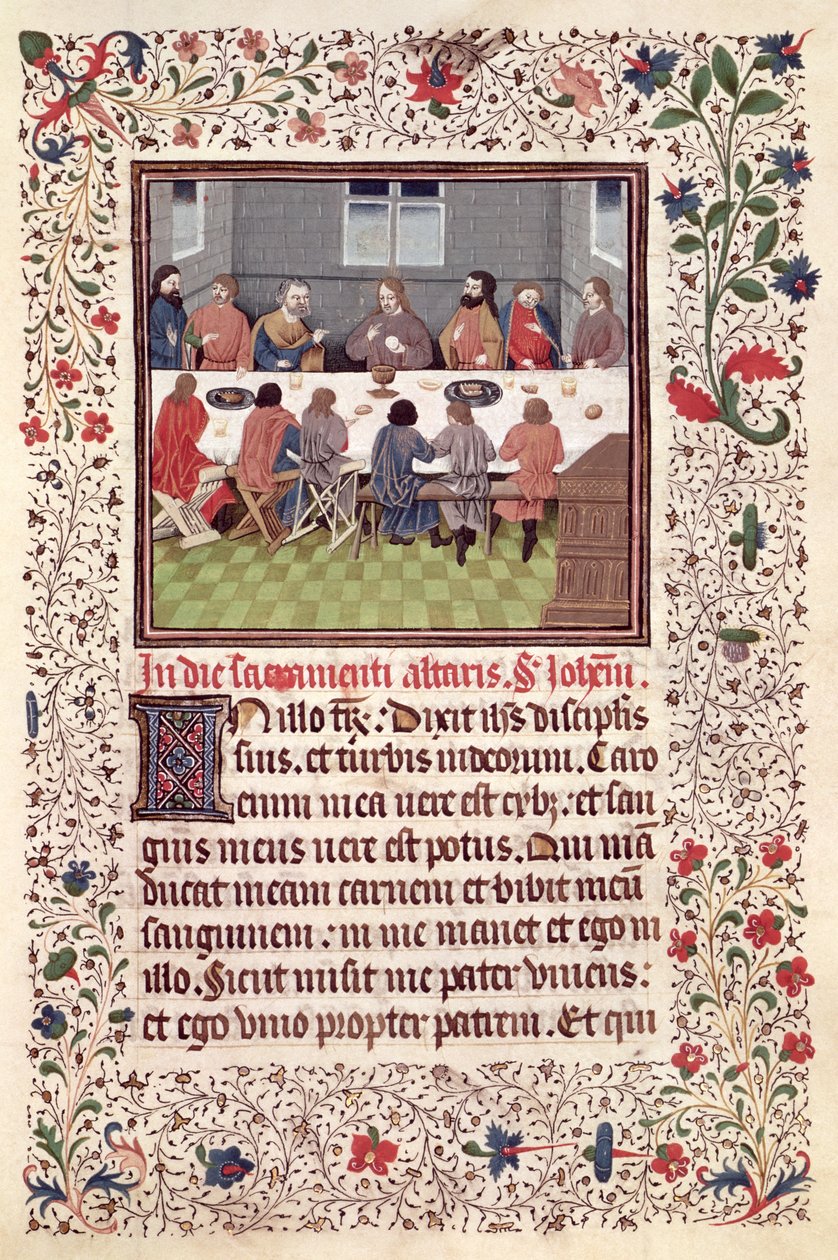 In die sacramenti altaris. S. Johēm.
In illo tꝑe: Dixit ihs discipl'is
suis. et turbis iudeorum. Caro
enim mea uere est cybꝫ: et san
guis meus uere est potus. Qui mā
ducat meam carnem et bibit meū
sanguinem: in me manet et ego in
illo. Sicut misit me pater viuens:
et ego viuo propter patrem. Et qui